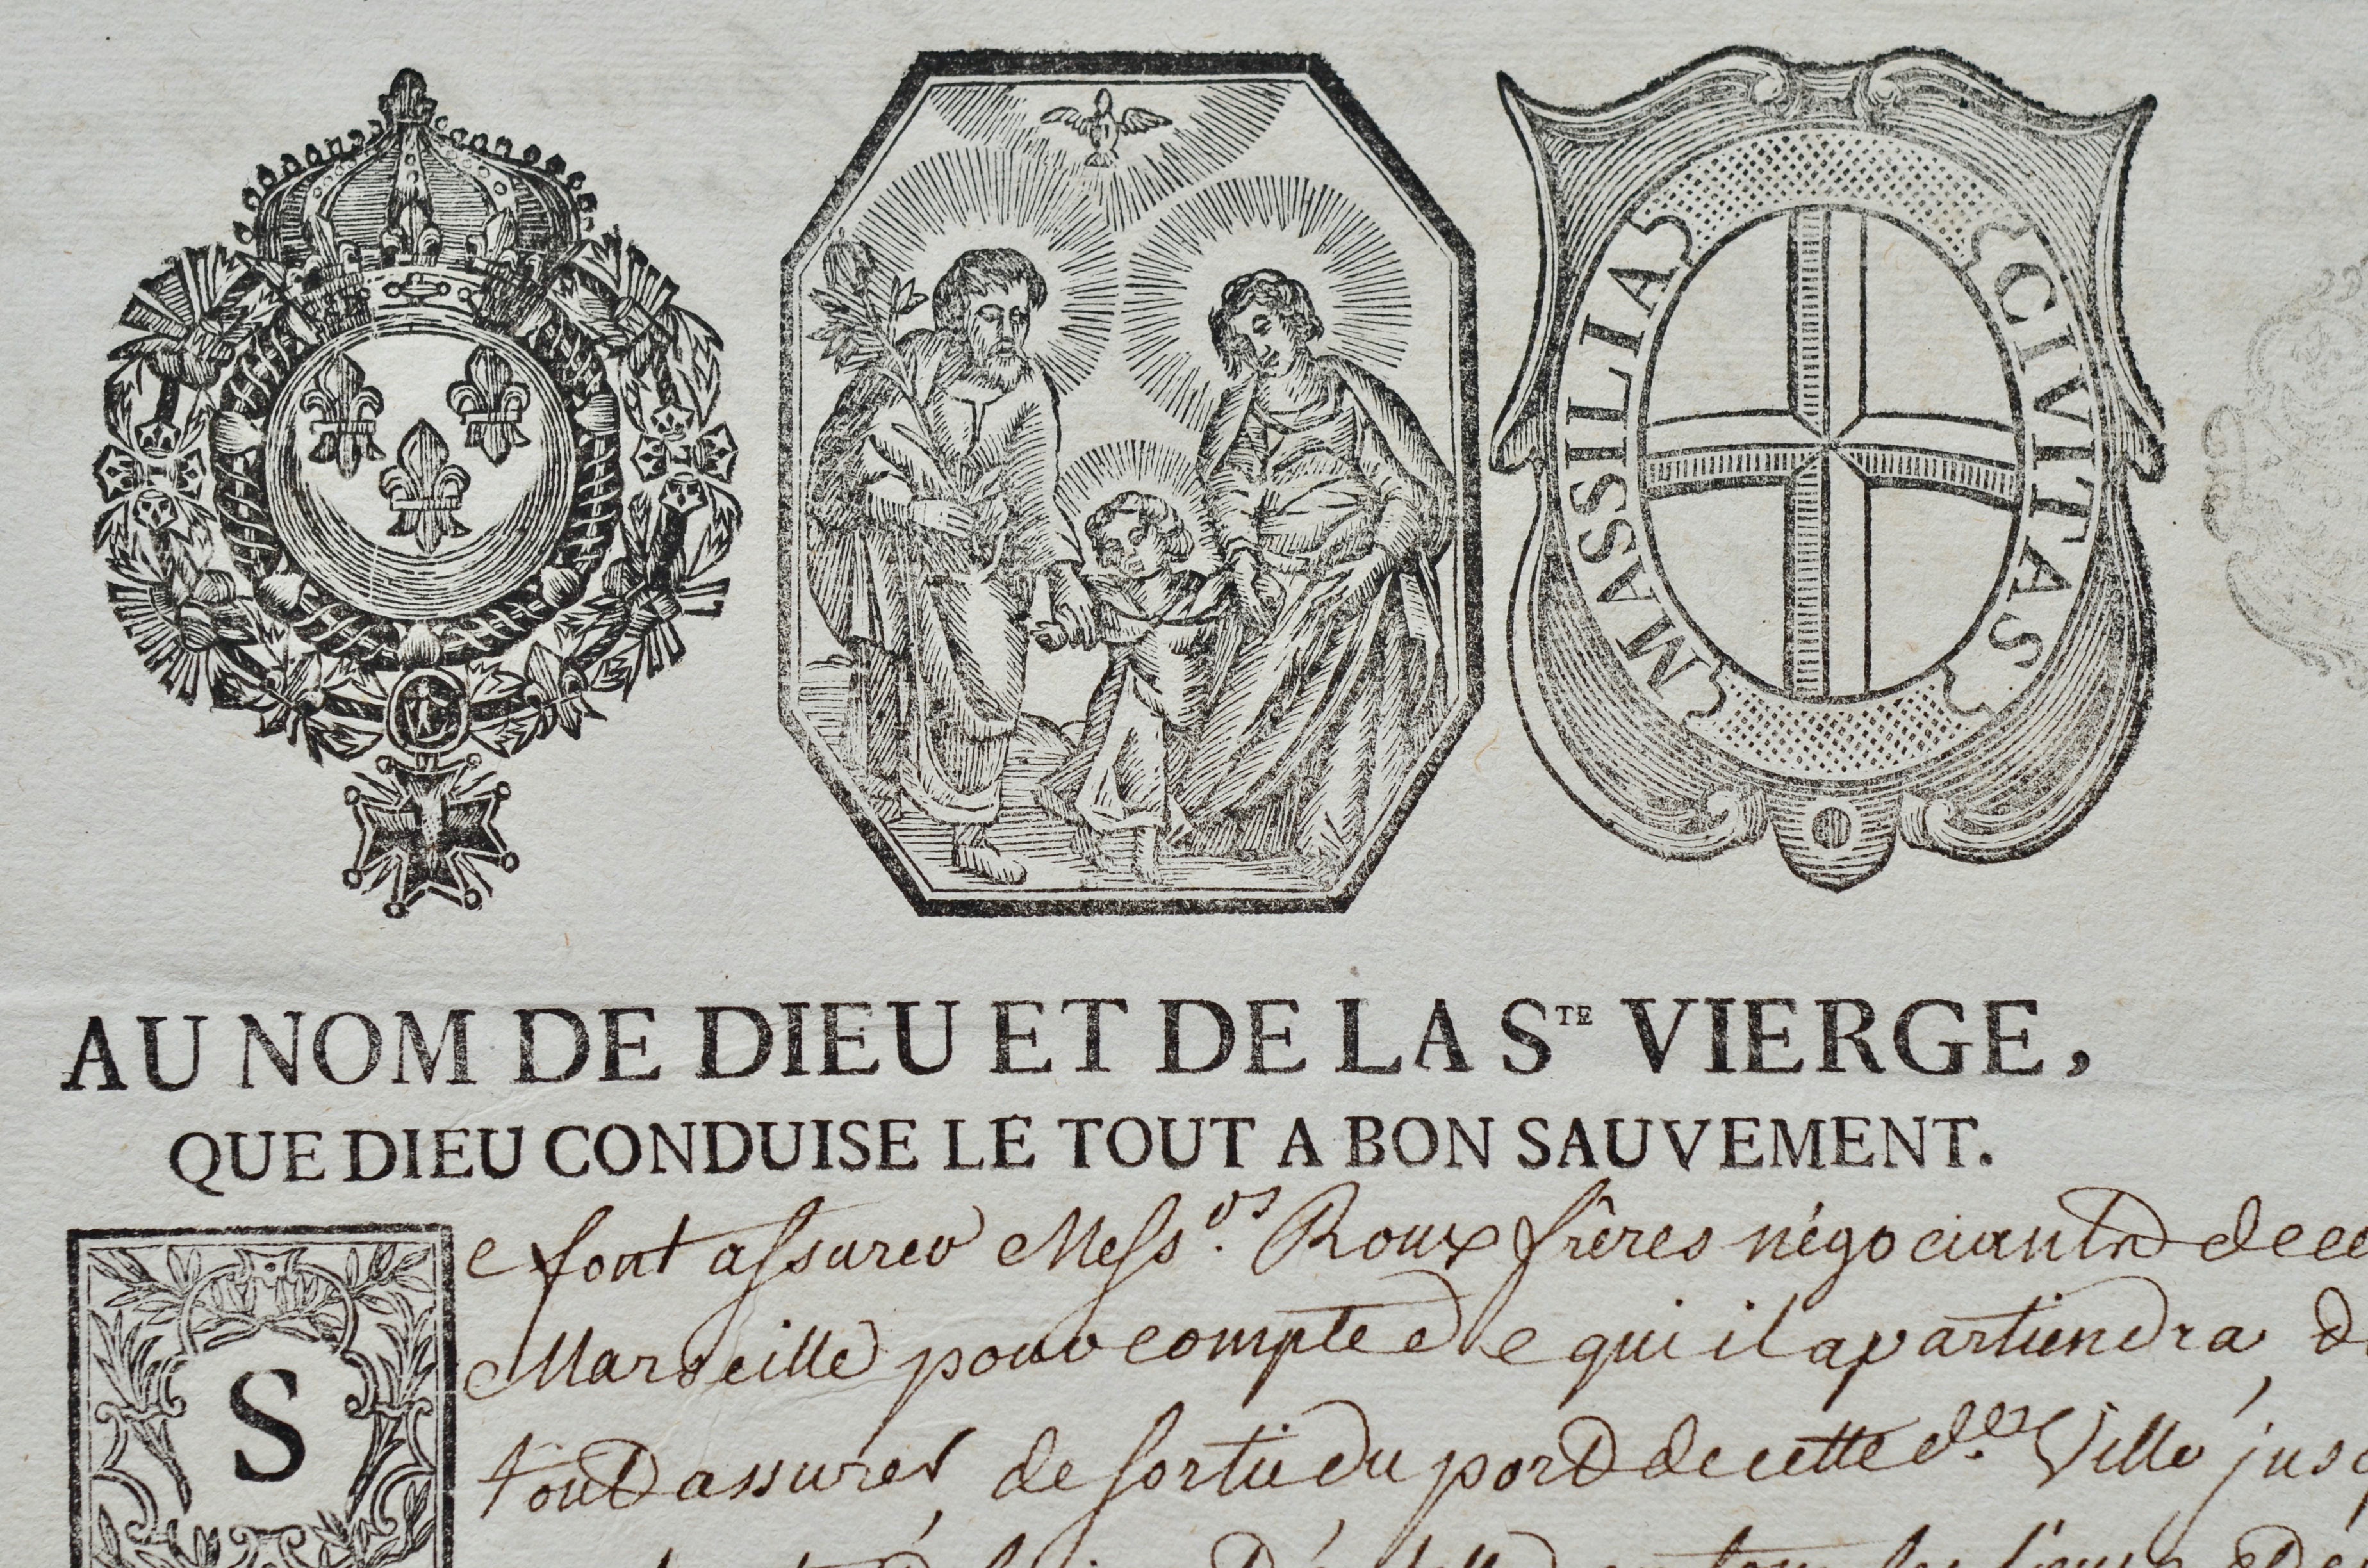 MASSILIA CIVITAS
AU NOM DE DIEU ET DE LA STE VIERGE,
QUE DIEU CONDUISE LE TOUT A BON SAUVEMENT.
Se font assurer Messrs. Roux frères négociants de ce
Marseille pour compte de qui il apartiendra,
tout assurer, de sortie du port de cette de. Ville jusq